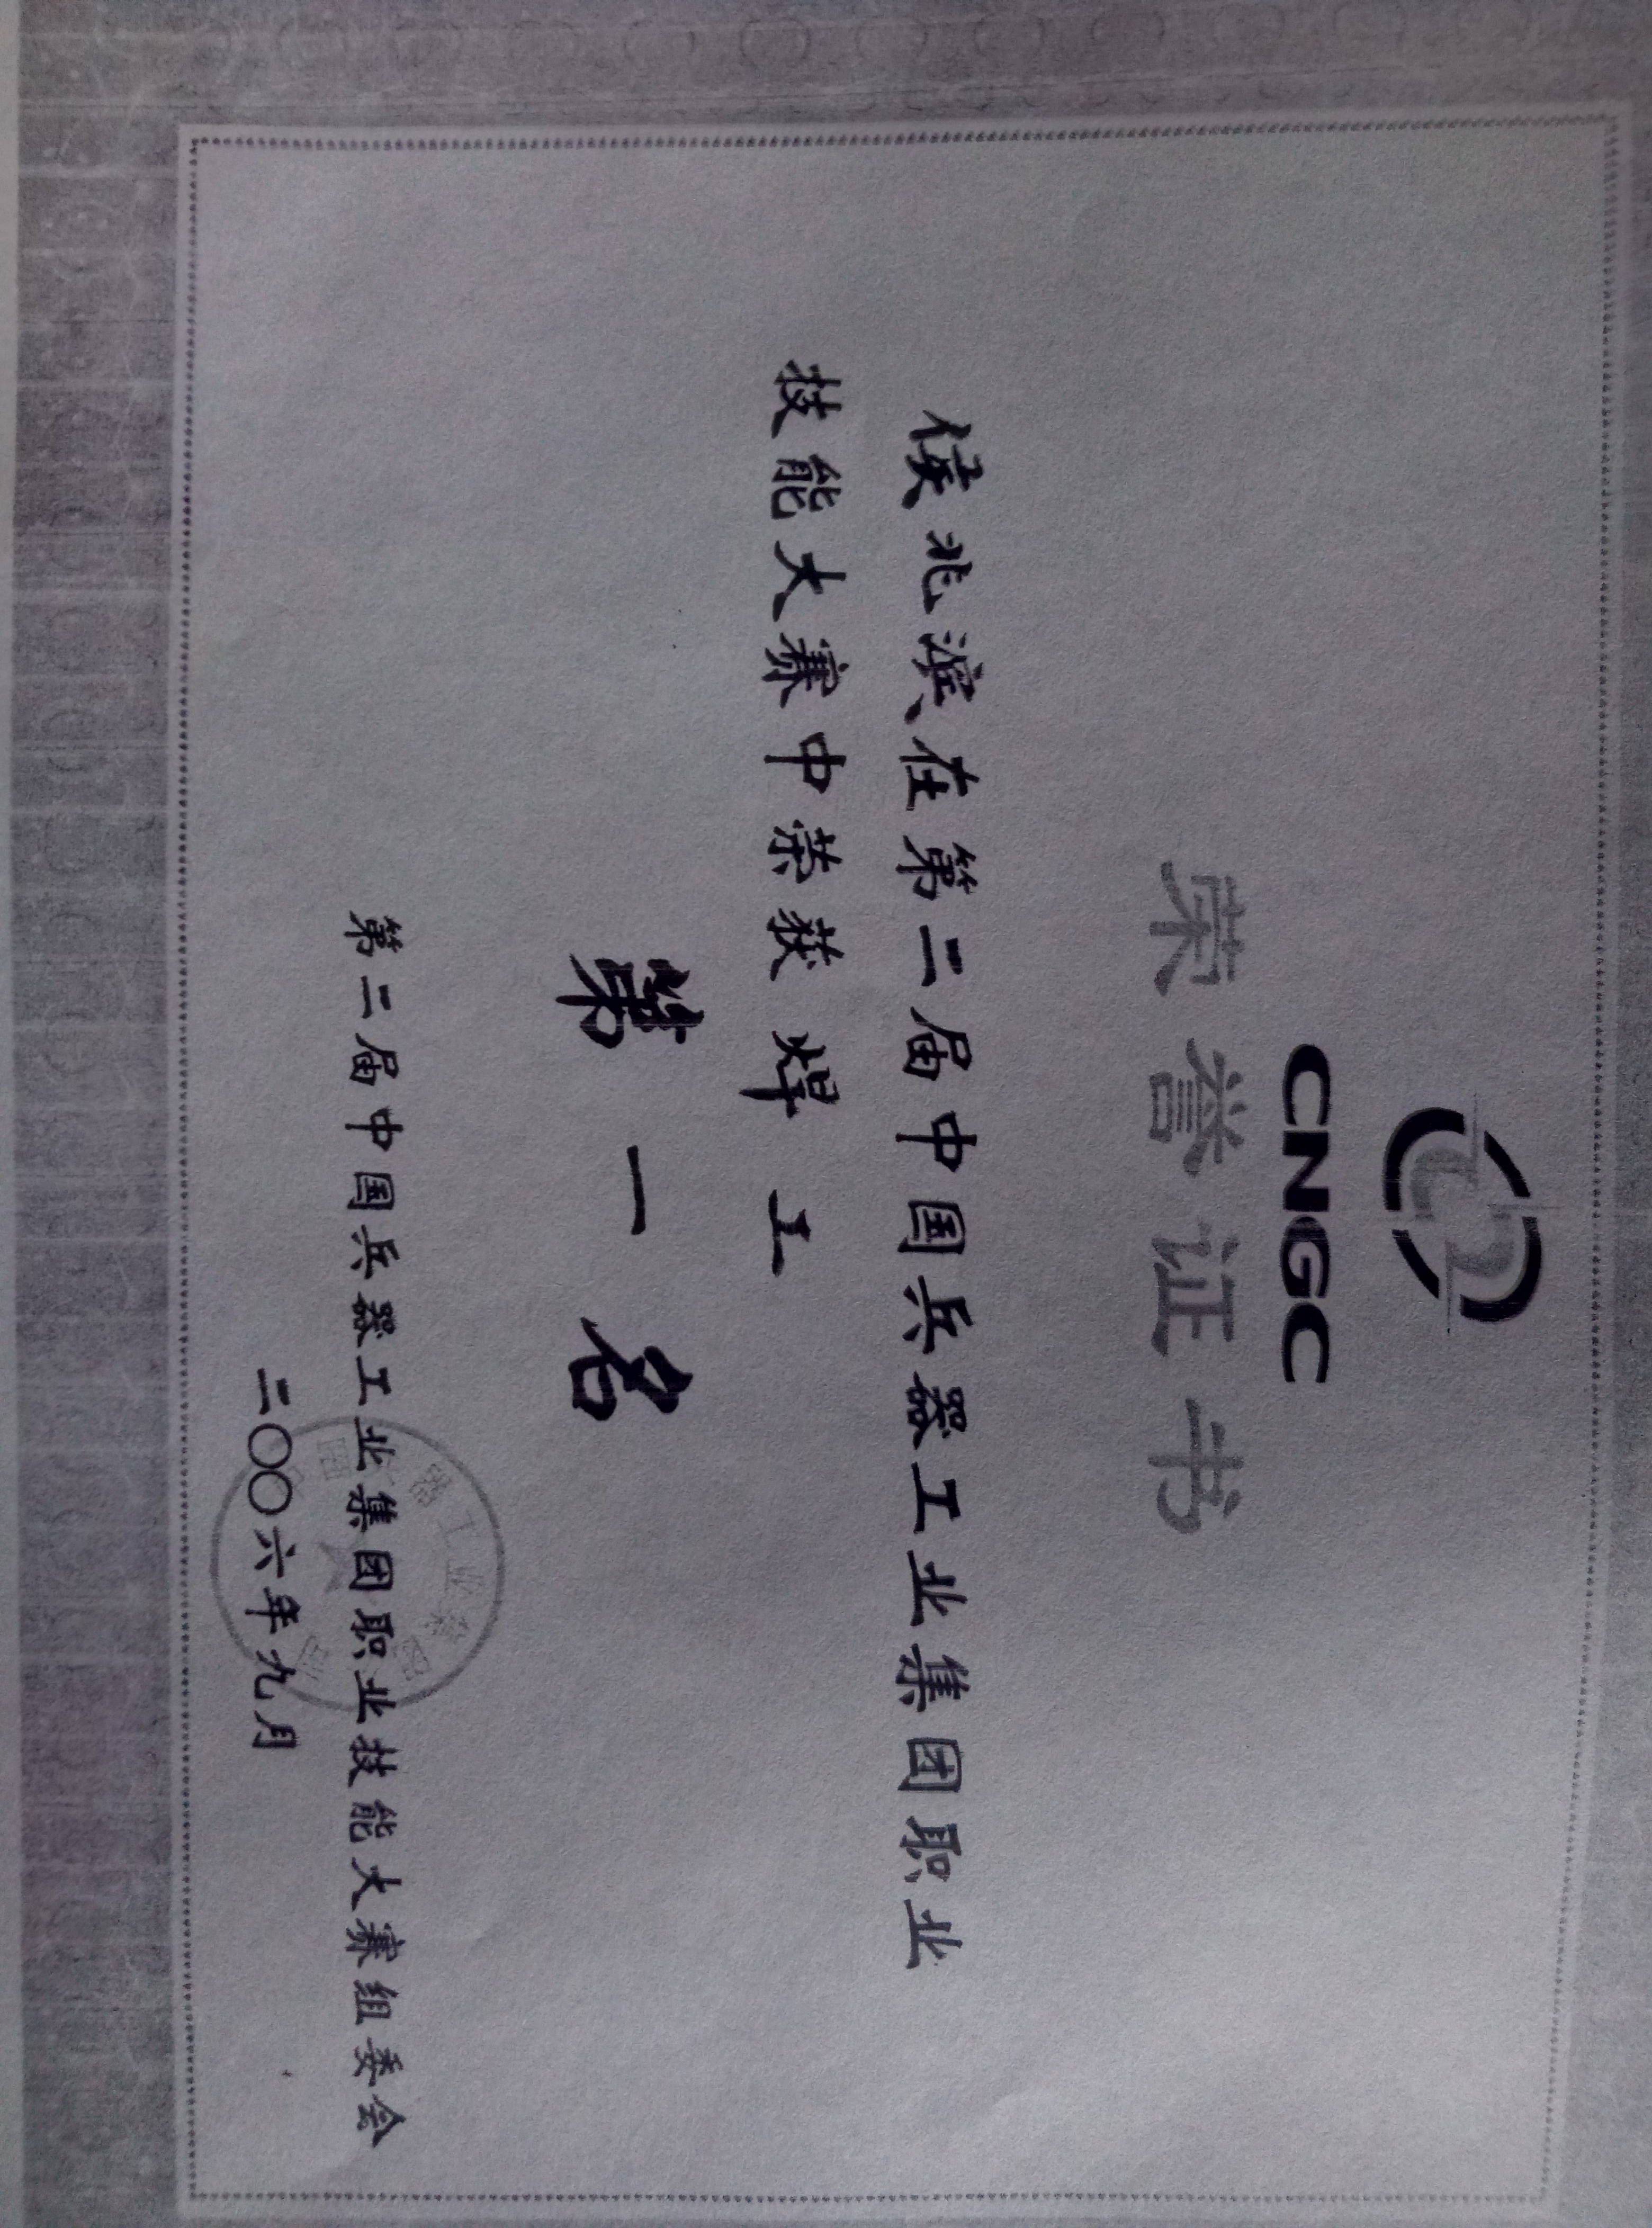 CNGC
荣誉证书
侯兆滨在第二届中国兵器工业集团职业
技能大赛中荣获 焊工
第一名
第二届中国兵器工业集团职业技能大赛组委会
二〇〇六年九月
器工业集团